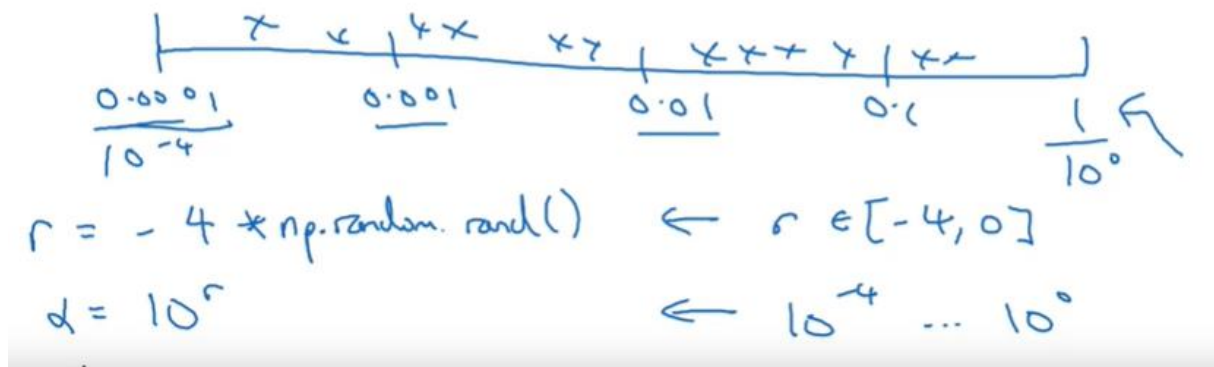 0.0001 0.001 0.01 0.1 1
10⁻⁴ 10⁰
r = - 4 * np.random.rand() ← r ∈ [-4, 0]
α = 10ʳ ← 10⁻⁴ ... 10⁰